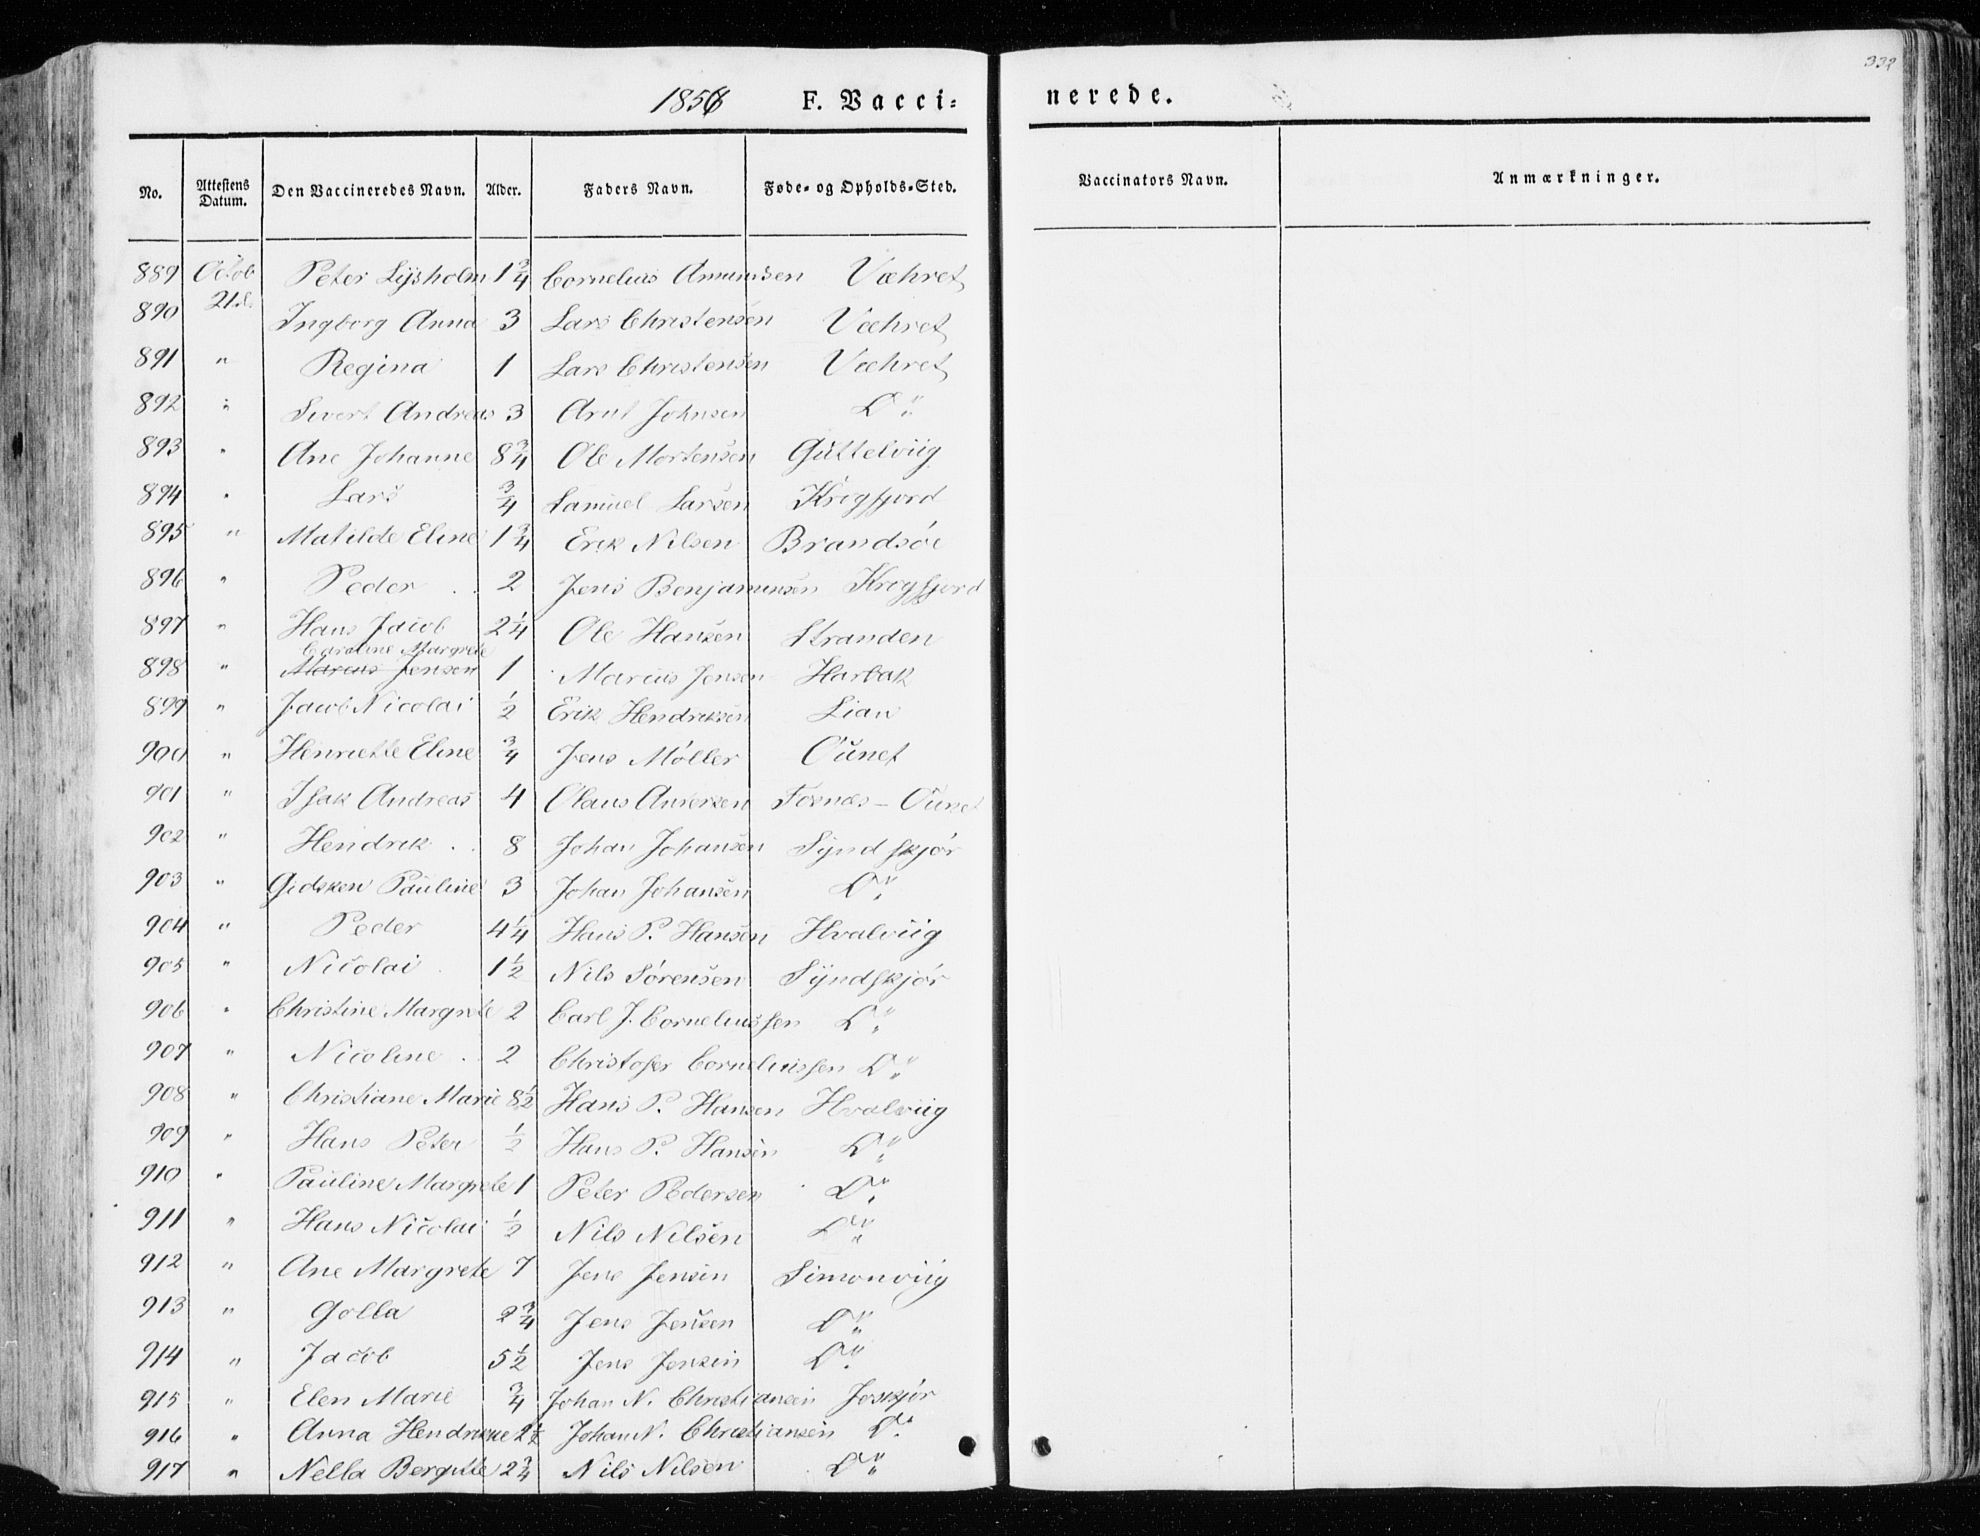 332
1856 F. Vacci: nerede.
No. Attestens Datum. Den Vaccineredes Navn. Alder. Faders Navn. Føde- og Opholds-Sted. Vaccinators Navn. Anmærkninger.
889 Octob 21 Peter Lysholm 1 3/4 Cornelius Amundsen Væhret
890 Ingborg Anna 3 Lars Christensen Væhret
891 " Regina 1 Lars Christensen Væhret
892 " Sivert Andreas 3 Arnt Johnsen D"
893 " Ane Johanne 8 3/4 Ole Mortensen Guttelviig
894 " Lars 3/4 Samuel Larsen Krogfjord
895 " Matilde Eline 1 3/4 Erik Nilsen Brandsøe
896 " Peder 2 Jens Benjaminsen Krogfjord
897 " Hans Jacob 2 1/4 Ole Hansen Stranden
Caroline Margrete
898 " Marcus Jensen 1 Marcus Jensen Harbak
899 " Jacob Nicolai 1/2 Erik Hendriksen Lian
900 " Henriette Eline 3/4 Jens Møller Ounet
901 " Isak Andreas 4 Olaus Andersen Fosnæs - Ounet
902 " Hendrik 8 Johan Johansen Syndskjør
903 " Gidsken Pauline 3 Johan Johansen D"
904 " Peder 4 1/4 Hans P. Hansen Hvalviig
905 " Nicolai 1 1/2 Nils Sørensen Syndskjør
906 " Christine Margrete 2 Carl J. Corneliussen D"
907 " Nicoline 2 Christofer Corneliussen D"
908 " Christiane Marie 8 1/2 Hans P. Hansen Hvalviig
909 " Hans Peter 1/2 Hans P. Hansen D"
910 " Pauline Margrete 1 Peter Pedersen D"
911 " Hans Nicolai 1/2 Nils Nilsen D"
912 " Ane Margrete 7 Jens Jensen Simonviig
913 " Golla 2 3/4 Jens Jensen D"
914 " Jacob 5 1/2 Jens Jensen D"
915 " Elen Marie 3/4 Johan N. Christiansen Joskjør
916 " Anna Hendrikke 2 1/2 Johan N. Christiansen D"
917 " Nella Bergitte 2 3/4 Nils Nilsen D"